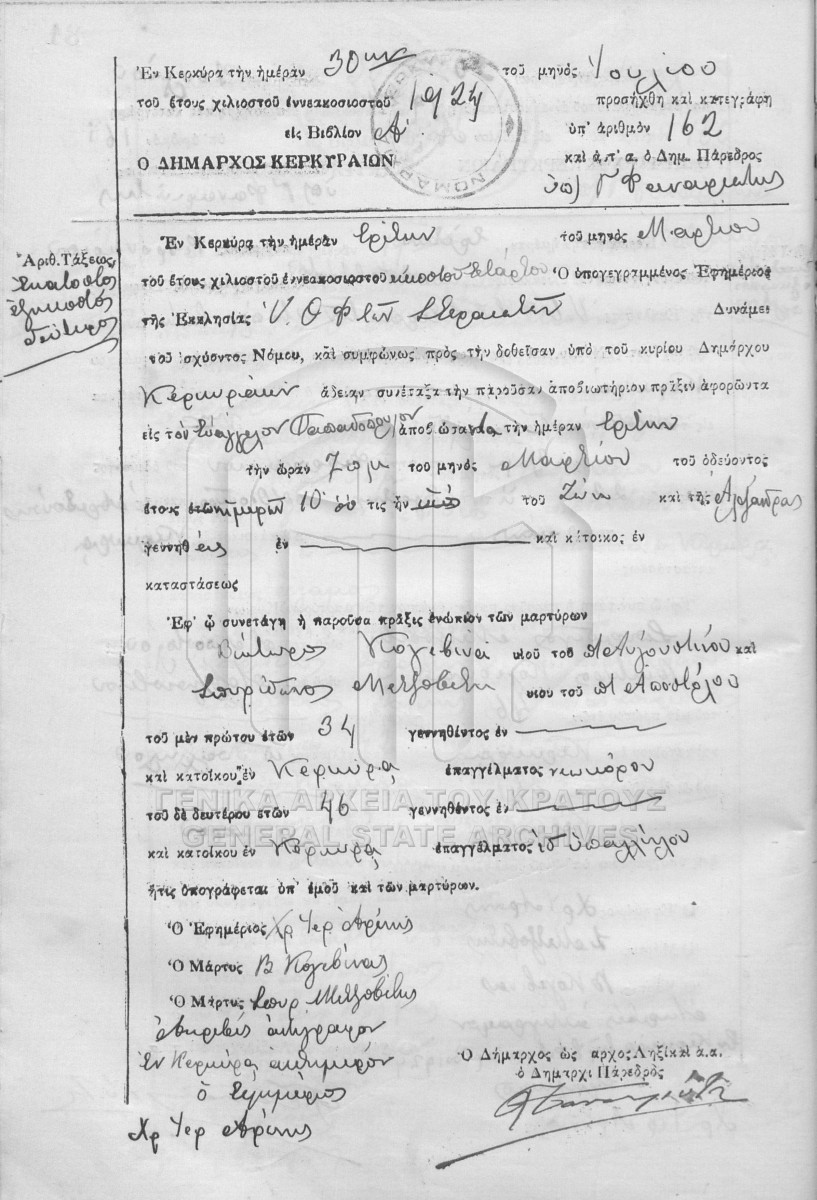 Ἐν Κερκύρᾳ τὴν ἡμέραν 30ην τοῦ μηνὸς Ἰουλίου
τοῦ ἔτους χιλιοστοῦ ἐννεακοσιοστοῦ 1924 προσήχθη καὶ κατεγράφη
εἰς Βιβλίον Α΄. ὑπ' ἀριθμὸν 162
Ο ΔΗΜΑΡΧΟΣ ΚΕΡΚΥΡΑΙΩΝ καὶ ἀ.π'α. ὁ Δημ. Πάρεδρος
Γ Φαναριώτης
Ἐν Κερκύρᾳ τὴν ἡμέραν τρίτην τοῦ μηνὸς Μαρτίου
Ἀριθ. Τάξεως
Ἑκατοστὸς
ἑξηκοστὸς
δεύτερος
τοῦ ἔτους χιλιοστοῦ ἐννεακοσιοστοῦ εἰκοστοῦ τετάρτου Ὁ ὑπογεγραμμένος Ἐφημέριος
τῆς Ἐκκλησίας Υ. Θ τῶν Δυνάμει
τοῦ ἰσχύοντος Νόμου, καὶ συμφώνως πρὸς τὴν δοθεῖσαν ὑπὸ τοῦ κυρίου Δημάρχου
Κερκυραίων ἄδειαν συνέταξα τὴν παροῦσαν ἀποβιωτήριον πρᾶξιν ἀφορῶντα
εἰς τὸν Εὐάγγελον Παπαδόπουλον ἀποβιώσαντα τὴν ἡμέραν τρίτην
τὴν ὥραν 7 τοῦ μηνὸς Μαρτίου τοῦ ὁδεύοντος
ἔτους ἐτῶν ἡμερῶν 10 ὅστις ἦν υἱὸς τοῦ Ζώη καὶ τῆς Ἀλεξάνδρας
γεννηθεὶς ἐν καὶ κάτοικος ἐν
καταστάσεως
Ἐφ' ᾧ συνετάγη ἡ παροῦσα πρᾶξις ἐνώπιον τῶν μαρτύρων
Βίκτωρος Κογεβίνα υἱοῦ τοῦ π Αὐγουστίνου καὶ
Σπυρίδωνος Μεταξοβίτη υἱοῦ τοῦ π Ἀποστόλου
τοῦ μὲν πρώτου ἐτῶν 34 γεννηθέντος ἐν
καὶ κατοίκου ἐν Κερκύρᾳ ἐπαγγέλματος νεωκόρου
ΓΕΝΙΚΑ ΑΡΧΕΙΑ ΤΟΥ ΚΡΑΤΟΥΣ
τοῦ δὲ δευτέρου ἐτῶν 46 γεννηθέντος ἐν
GENERAL STATE ARCHIVES
καὶ κατοίκου ἐν Κερκύρᾳ ἐπαγγέλματος ἰδ ὑπαλλήλου
ἥτις ὑπογράφεται ὑπ' ἐμοῦ καὶ τῶν μαρτύρων.
Ὁ Ἐφημέριος Χρ Ἱερ
Ὁ Μάρτυς Β Κογεβίνας
Ὁ Μάρτυς Σπυρ
Ἀκριβὲς ἀντίγραφον
Ἐν Κερκύρᾳ αὐθημερόν
ὁ Ἐφημέριος
Χρ Ἱερ
Ὁ Δήμαρχος ὡς αρχος Ληξικαὶ ἀ.α.
ὁ Δημαρχι Πάρεδρος